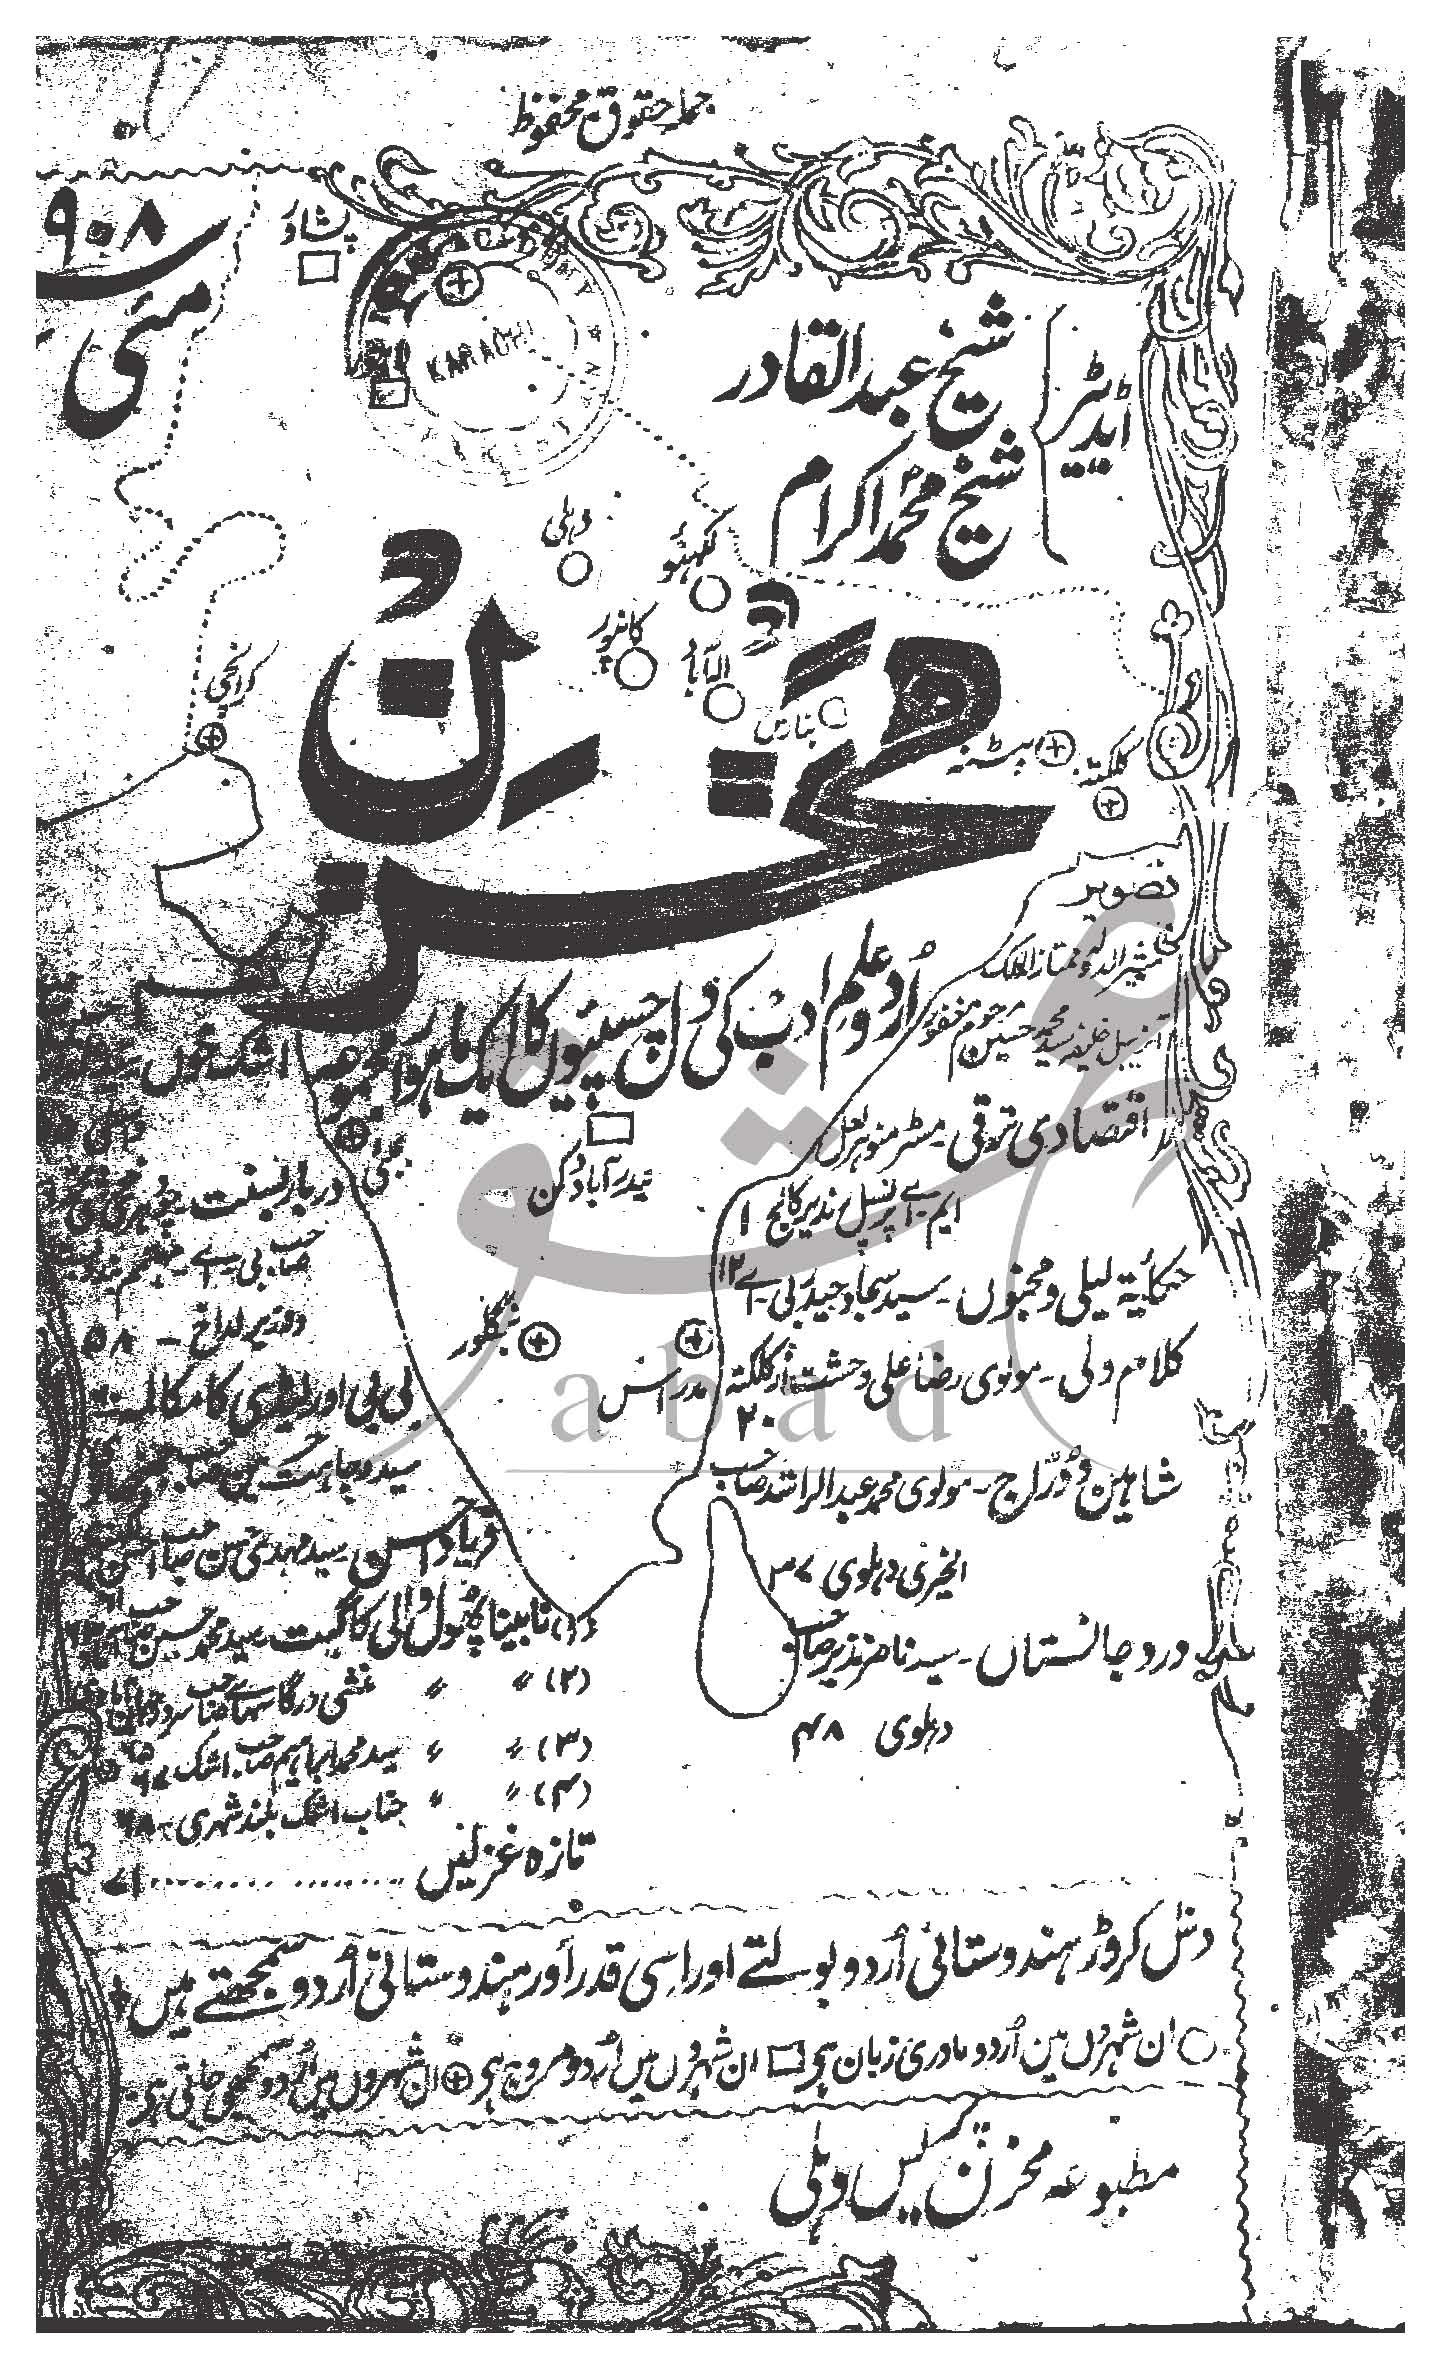 جملہ حقوق محفوظ
۹۰۸
مئی
پشاور
KARACHI
ایڈیٹر
شیخ عبدالقادر
شیخ محمد اکرام
دہلی
لکھنؤ
کانپور
الہ آباد
بنارس
پٹنہ
کلکتہ
کراچی
مخزن
اُردو علم ادب کی دل چسپیوں کا ایک ماہوار مجموعہ
تصویر
مشیر الدولہ ممتاز الملک
آنریبل خلیفہ سید محمد حسین مرحوم مغفور
اقتصادی ترقی ۔ مسٹر منوہر لعل
ایم ۔ اے پرنسپل ندہیر کالج ۱
حکایۃ لیلی و مجنوں ۔ سید سجاد حیدر بی ۔ اے ۱۲
کلام ولی ۔ مولوی رضا علی وحشت از کلکتہ
۲۰
شاہین و دُرّاج ۔ مولوی محمد عبدالراشد صاحب
الخیری دہلوی ۳۷
درد جانستاں ۔ سید ناصر نذیر صاحب
دہلوی ۴۸
حیدرآباد دکن
بمبئی
بنگلور
مدراس
اشک خوں
دربار بسنت ۔ چوہدری خوشی محمد
صاحب بی ۔ اے ۔ مہتمم بندوبست
و وزیر لداخ ۔ ۵۸
بی بی اور لیڈی کا مکالمہ
سید وجاہت حسین صاحب
فریاد حسن ۔ سید مہدی حسن صاحب احسن
(۱) نابینا پھول والی کا گیت ۔ سید محمد حسین صاحب
(۲) 〃 〃 منشی درگا سہائے صاحب سرور
(۳) 〃 〃 سید محمد ابراہیم صاحب اشک ۶۷
(۴) 〃 〃 جناب اشک بلند شہری ۔ ۶۸
تازہ غزلیں ........ ۷۱
دس کروڑ ہندوستانی اُردو بولتے اور اسی قدر اور ہندوستانی اُردو سمجھتے ہیں
○ ان شہروں میں اُردو مادری زبان ہی □ ان شہروں میں اُردو مروج ہی ⊕ ان شہروں میں اُردو سمجھی جاتی ہی
مطبوعہ مخزن پریس دہلی
abad